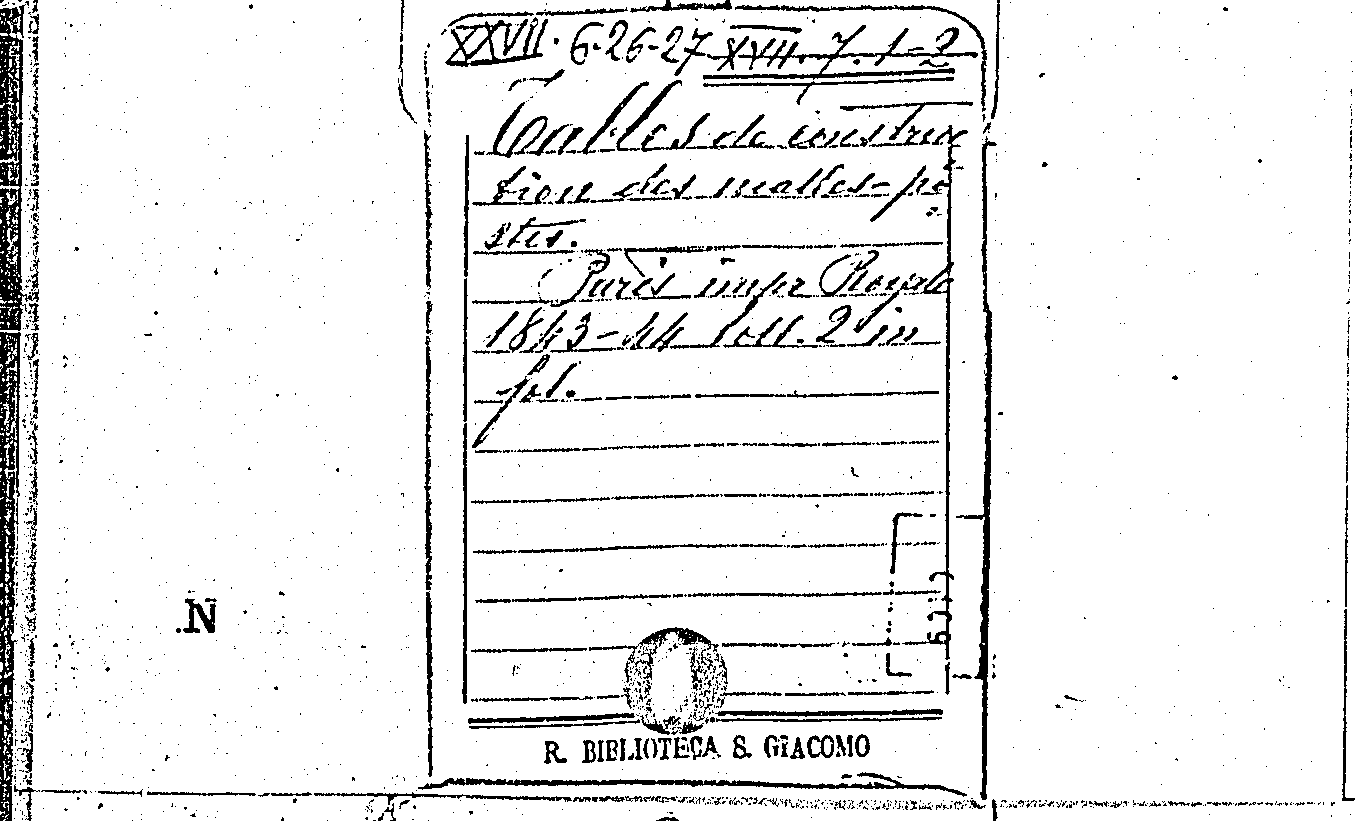 XXVII. 6-26-27 XVII. 7. 1-2
Tables de construc
tion des malles-po
stes.
Paris impr Royale
1843-44 voll. 2 in
fol.
N
R. BIBLIOTECA S. GIACOMO